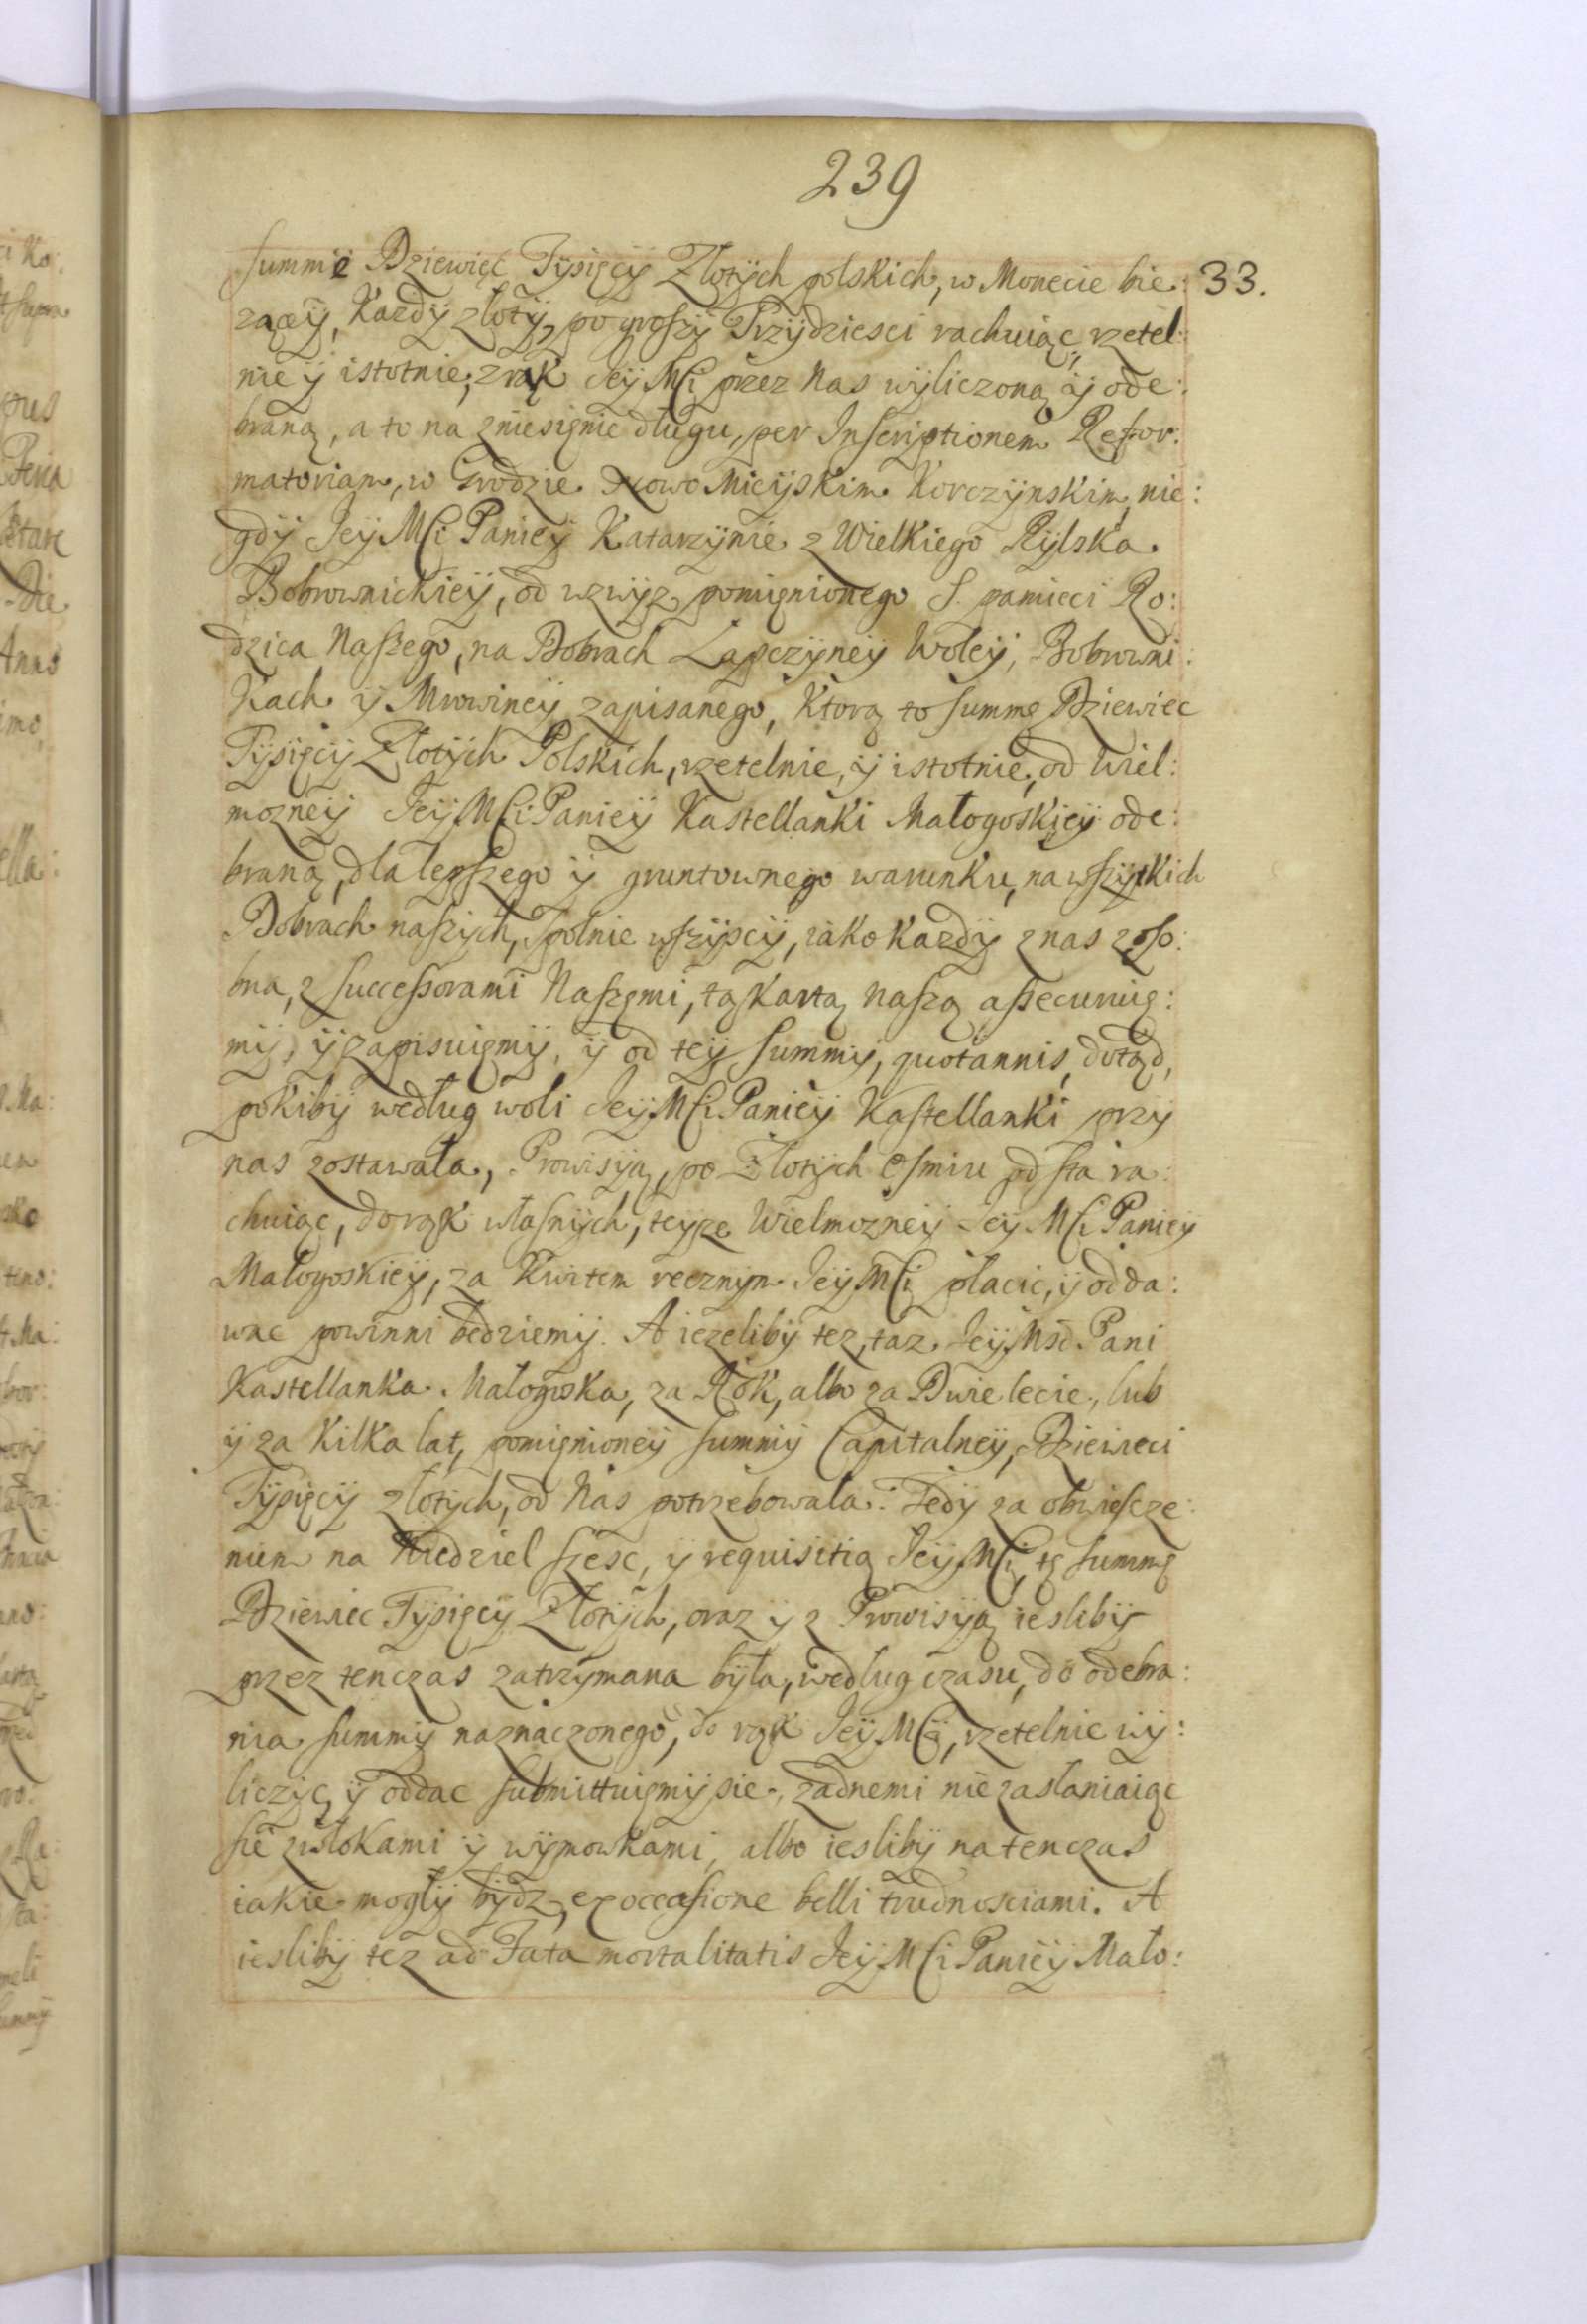 239
33.
summę Dziewięć Tysięcy Złotÿch polskich, w Monecie bie:
zącęÿ, Kazdÿ złotÿ, po groszÿ Trzÿdziesci rachuiąc, rzetel:
nie ÿ istotnie, z rąk Jeÿ MCi przez Nas wÿliczoną ÿ ode:
braną, a to na zniesięnie długu, per Inscriptionem Refor:
matoriam, w Grodzie Nowo Mieÿskim Korczÿnskim, nie:
gdÿ Jeÿ MCi Panieÿ Katarzÿnie z Wielkiego Rÿlska
Bobrownickieÿ, od wzwÿz pomięnionego S. pamieci Ro:
dzica Naszego, na Dobrach Łapczÿneÿ Woleÿ, Bobrowni:
Kach ÿ Mrowineÿ zapisanego, Ktorą to summę Dziewiec
Tÿsięcÿ Złotÿch Polskich, rzetelnie, ÿ istotnie, od Wiel:
mozneÿ Jeÿ MCi Panieÿ Kastellanki Małogoskieÿ ode:
braną, dla lepszego ÿ gruntownego warunku, na wszÿtkich
Dobrach naszÿch, Spolnie wszÿscÿ, iako Kazdÿ z nas z oso:
bna, z successorami Naszęmi, tą Kartą naszą assecuruię:
mÿ, ÿ zapisuięmÿ, ÿ od teÿ Summÿ, quotannis, dotąd,
pokibÿ według woli Jeÿ MCi Panieÿ Kastellanki przÿ
nas zostawała, Prowisÿą, po Złotÿch Osmiu od sta ra:
chuiąc, do rąk własnÿch, teÿze Wielmozneÿ Jeÿ MCi Panieÿ
Małogoskieÿ, za Kwitem recznÿm Jeÿ MCi płacic, ÿ odda:
wac powinni bedziemÿ. A iezelibÿ tez, taz Jeÿ Msc Pani
Kastellanka Małogoska, za Rok, albo za Dwie lecie, lub
ÿ za Kilka lat, pomięnioneÿ summÿ Capitalneÿ, Dziewieci
Tÿsięcÿ złotÿch, od Nas potrzebowała: Tedÿ za obwiescze:
niem na Niedziel szesc, ÿ requisitią Jeÿ MCi, tę summę
Dziewiec Tÿsięcÿ Złotÿch, oraz ÿ z Prowisÿą ieslibÿ
przez tenczas zatrzÿmana bÿła, według czasu, do odebra:
nia summÿ naznaczonego, do rąk Jeÿ MCi, rzetelnie wÿ:
liczÿc, ÿ oddac submittuięmÿ sie, zadnemi nie zasłaniaiąc
sie zwłokami ÿ wÿmowkami, albo ieslibÿ natenczas
iakie mogłÿ bÿdz, ex occasione belli trudnosciami. A
ieslibÿ tez ad Fata mortalitatis Jeÿ MCi Panieÿ Mało: